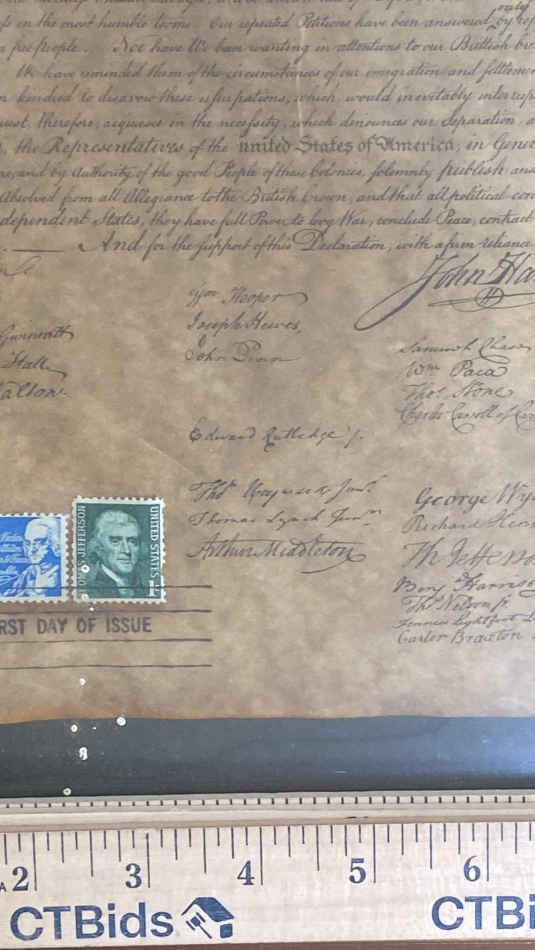 in the most humble terms. Our repeated Petitions have been answered
only
free people. Nor have We been wanting in attentions to our Brittish
We have reminded them of the circumstances of our emigration and
kindred to disavow these usurpations, which, would inevitably
therefore, acquiesce in the necessity, which denounces our Separation
the Representatives of the united States of America, in
and by Authority of the good People of these Colonies, solemnly publish and
Absolved from all Allegiance to the British Crown, and that all political
dependent States, they have full Power to levy War, conclude Peace, contract
And for the support of this Declaration, with a firm reliance
John Ha
Wm Hooper
Joseph Hewes,
John Penn
Gwinnett
Hall
Walton.
Samuel Chase
Wm Paca
Thos Stone
Edward Rutledge
Thos Heyward Junr.
Thomas Lynch Junr.
Arthur Middleton
George Wy
Richard Hen
Th Jefferson
Benj Harrison
Thos Nelson jr.
Francis Lightfoot L
Carter Braxton
JEFFERSON
UNITED STATES
1
RST DAY OF ISSUE
2 3 4 5 6
CTBids CTBi